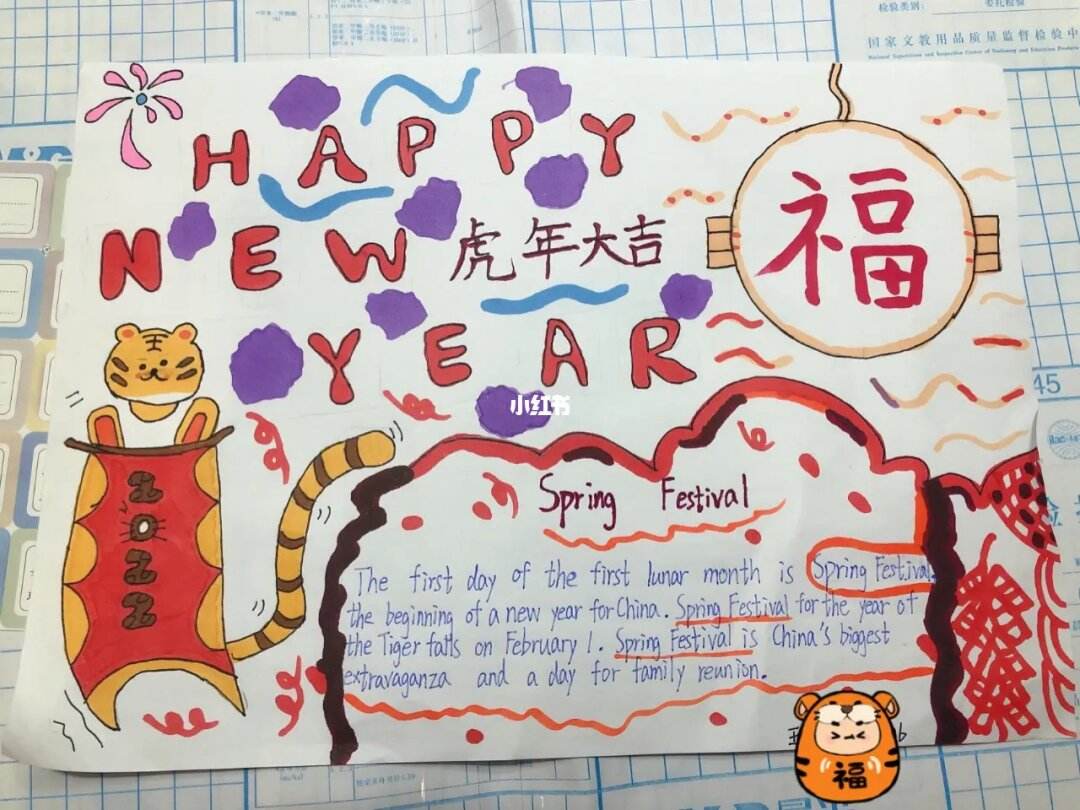 检验类别:
委托检验
国家文教用品质量监督检验中
National Supervision and Inspection Center of Stationery and Education Products
HAPPY
NEW
虎年大吉
YEAR
福
王
小红书
45
2022
Spring Festival
The first day of the first lunar month is Spring Festival,
the beginning of a new year for China. Spring Festival for the year of
the Tiger falls on February 1. Spring Festival is China's biggest
extravaganza and a day for family reunion.
福